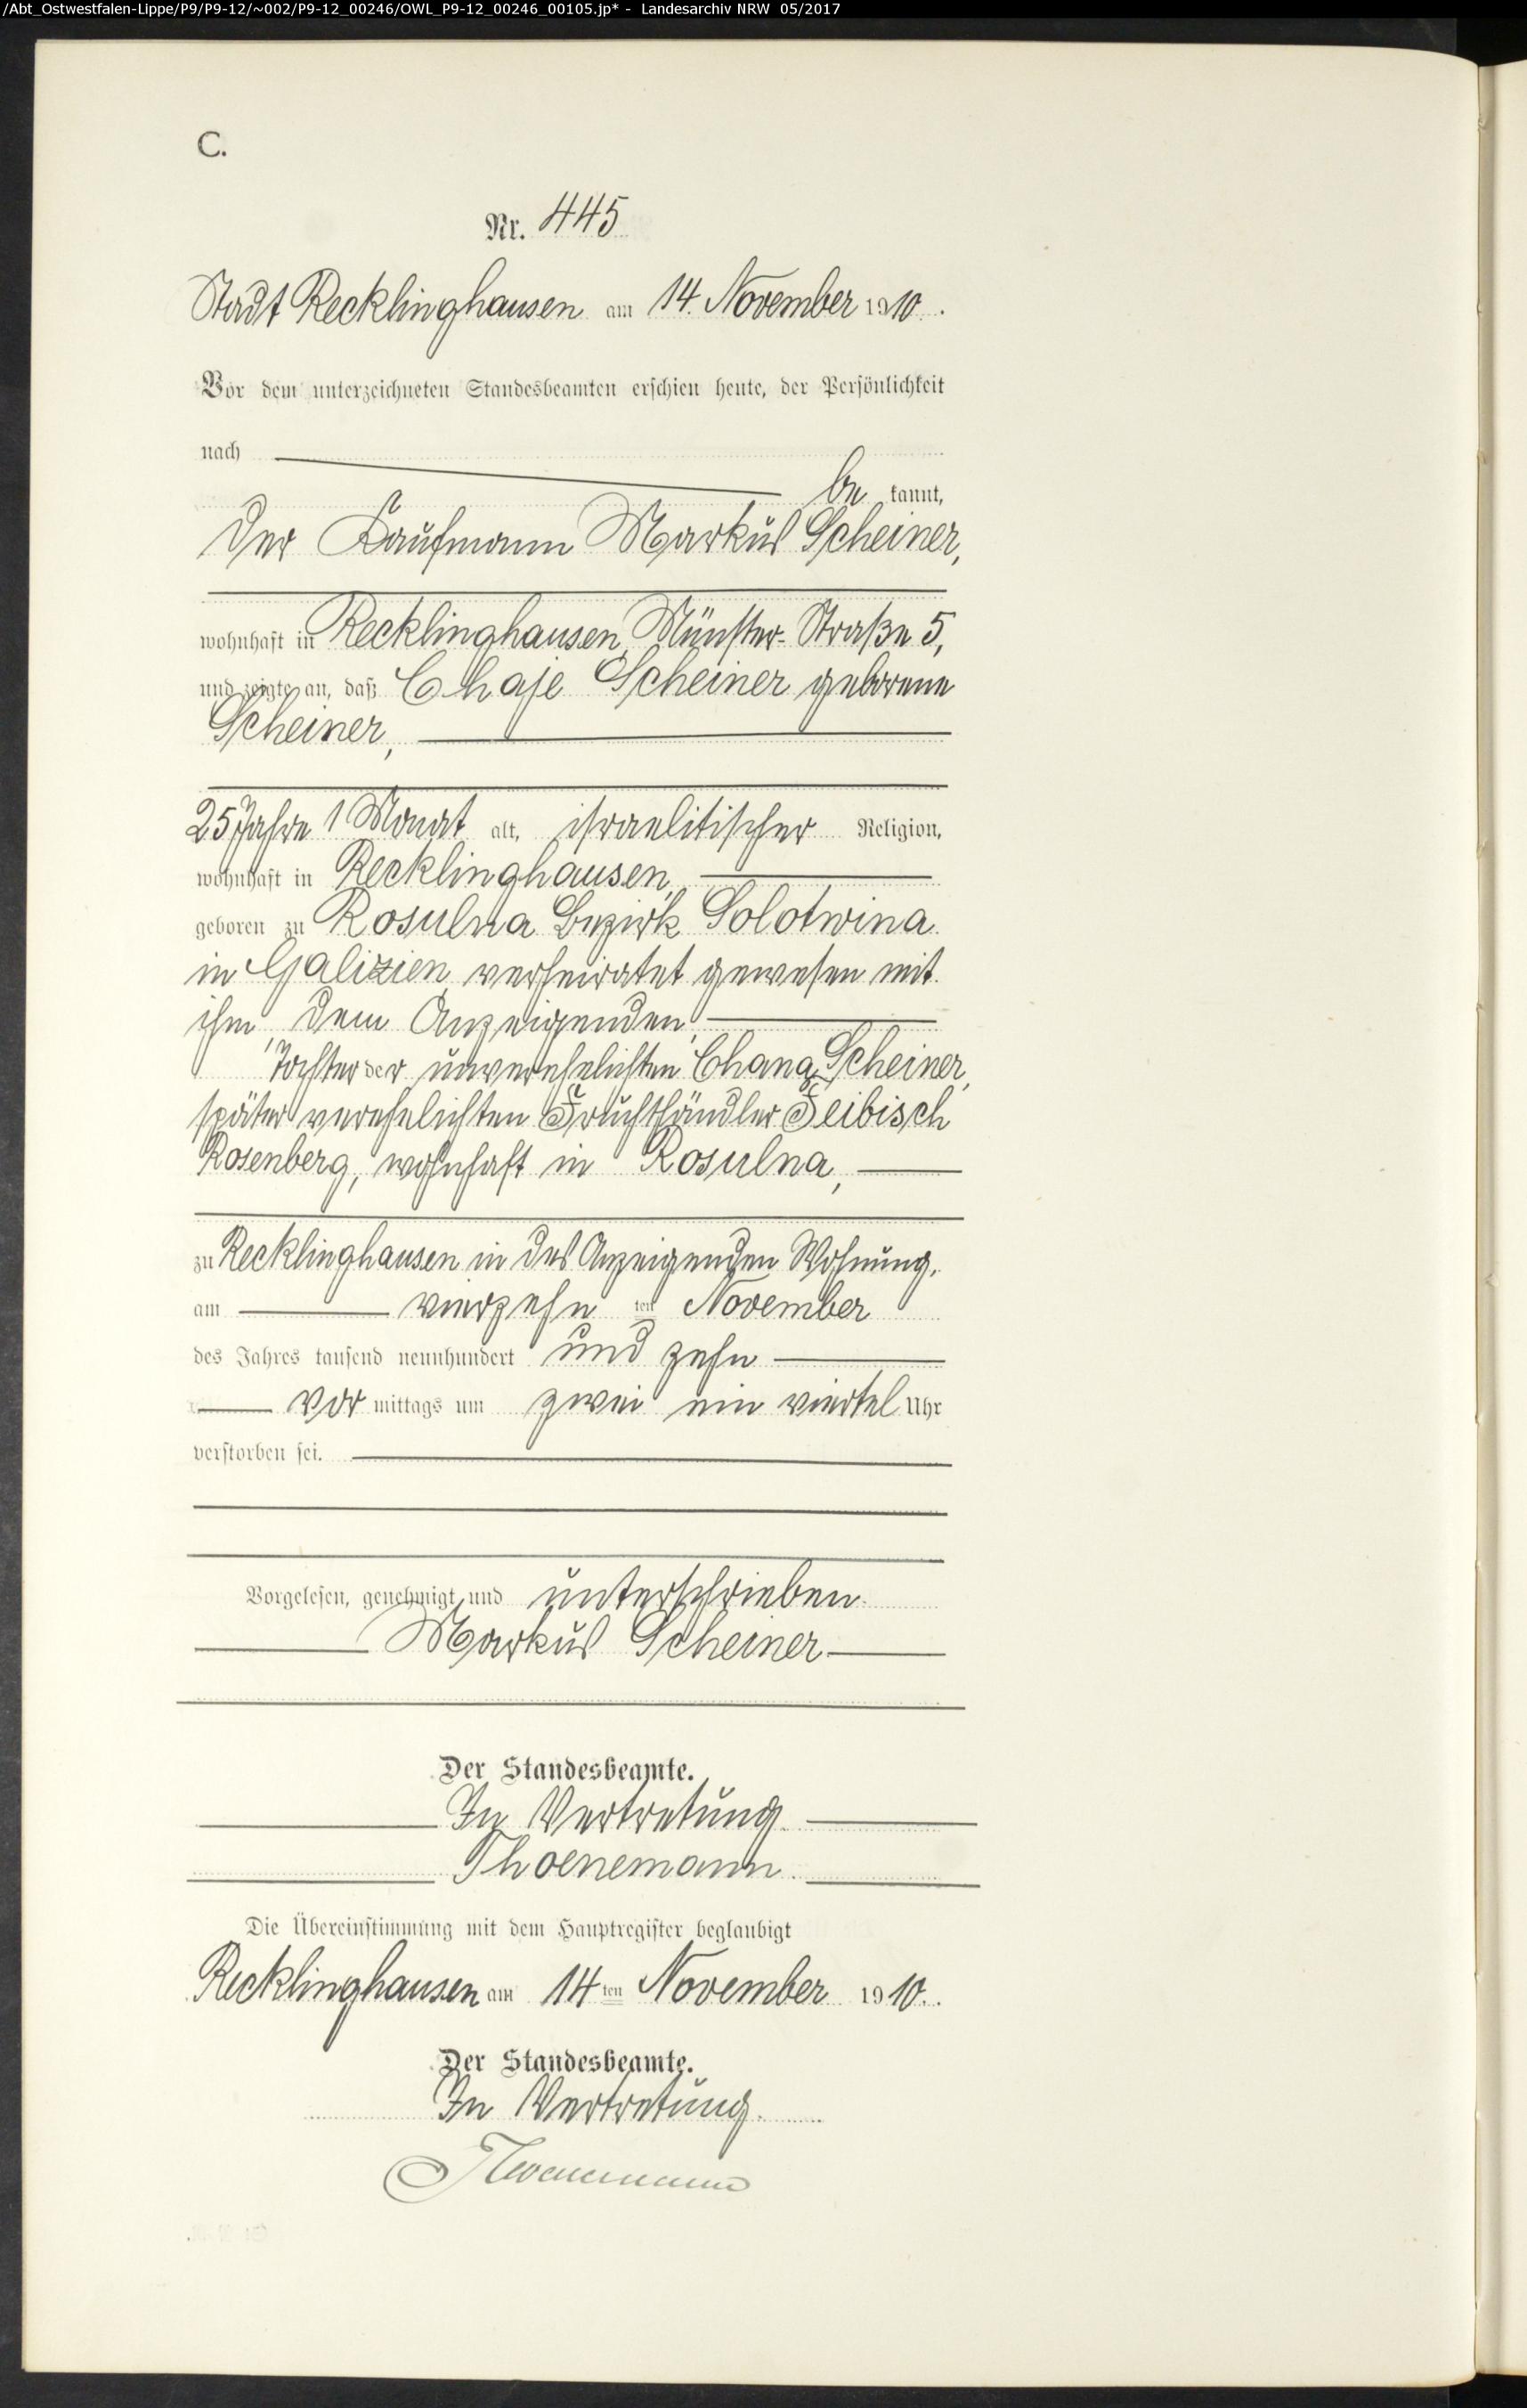 /Abt_Ostwestfalen-Lippe/P9/P9-12/~002/P9-12_00246/OWL_P9-12_00246_00105.jp* - Landesarchiv NRW 05/2017
C.
Nr. 445
Stadt Recklinghausen am 14. November 1910.
Vor dem unterzeichneten Standesbeamten erschien heute, der Persönlichkeit
nach
be kannt,
der Kaufmann Markus Scheiner,
wohnhaft in Recklinghausen, Münster-Straße 5,
und zeigte an, daß Chaje Scheiner geborene
Scheiner,
25 Jahre 1 Monat alt, israelitischer Religion,
wohnhaft in Recklinghausen,
geboren zu Rosulna Bezirk Solotwina
in Galizien, verheiratet gewesen mit
ihm, dem Anzeigenden,
Tochter der unverehelichten Chana Scheiner,
später verehelichten Fruchthändler Feibisch
Rosenberg, wohnhaft in Rosulna,
zu Recklinghausen in des Anzeigenden Wohnung,
am vierzehn ten November
des Jahres tausend neunhundert und zehn
vor mittags um zwei ein viertel Uhr
verstorben sei.
Vorgelesen, genehmigt und unterschrieben.
Markus Scheiner
Der Standesbeamte.
In Vertretung.
Thoenemann.
Die Übereinstimmung mit dem Hauptregister beglaubigt
Recklinghausen am 14 ten November 1910.
Der Standesbeamte.
In Vertretung.
Thoenemann